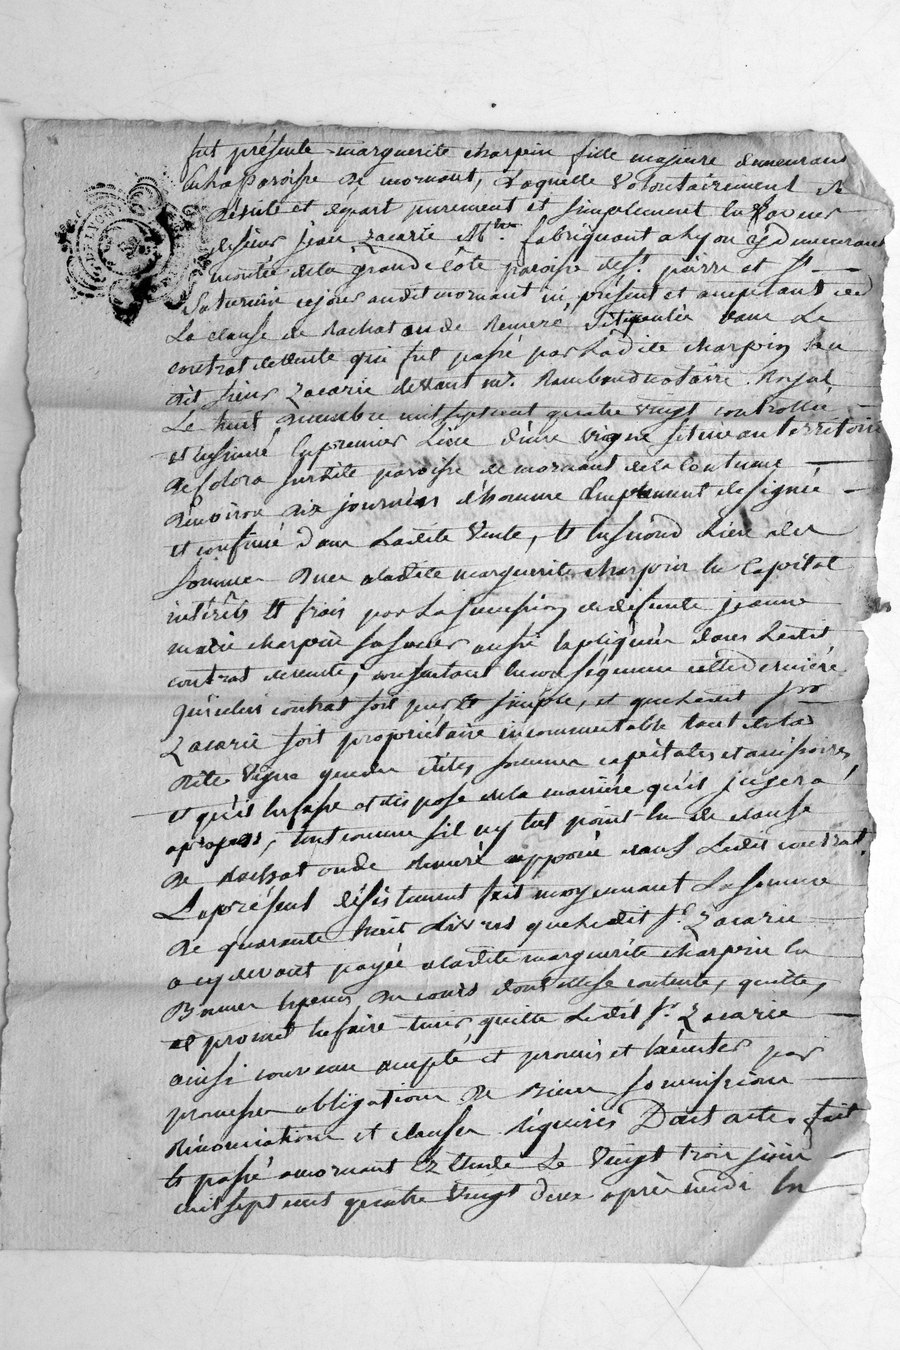 fut présente marguerite charpin fille majeure demeurant
en la Paroisse de mornant, Laquelle volontairement se
désiste et départ purement et simplement en faveur
de sieur jean Zacarie Mtre fabriquant a Lyon y demeurant
montée de la grande Cote paroisse de st. pierre et st.
Saturnin ce jour audit mornant ici présent et acceptant de
La clause de Rachat ou de Remeré Stipulée dans Le
contrat de vente qui fut passé par Ladite charpin au
dit sieur Zacarie devant me. notaire Royal
Le huit mil sept cent quatre vingt controllé
et insinué en premier Lieu d'une vigne située au territoire
de solora susdite paroisse de mornant de la Contenue
d'environ dix journées d'homme amplement designée
et confinée dans Ladite vente, et en second Lieu des
sommes dues a ladite marguerite charpin en Capital
intérêts et frais par La succession de défunte jeanne
marie charpin sa soeur aussi expliquées dans Ledit
contrat de vente, consentant en conséquence cette derniere
qu'icelui contrat soit pur et simple, et que Ledit sr
Zacarie soit propriétaire incommutable tant de la
dite vigne que des dites sommes capitales et accessoires
et qu'il en fasse et dispose de la maniére qu'il jugera
apropos, tout comme s'il ny eut point eu de clause
de Rachat ou de Remeré apposée dans Ledit contrat.
Le présent désistement fait moyennant La somme
de quarante huit Livres que Ledit sr. Zacarie
a cy devant payée a ladite marguerite charpin en
Bonnes Especes du cours dont elle se contente, quitte,
et promet en faire tenir quitte Ledit sr. Zacarie
ainsi convenu accepté et promis et Exécuter par
promesses obligations de Biens soumissions
Rénonciations et clauses Réquises Dont acte. fait
et passé a mornant Etude Le vingt trois juin
mil sept cent quatre vingt deux après midi En